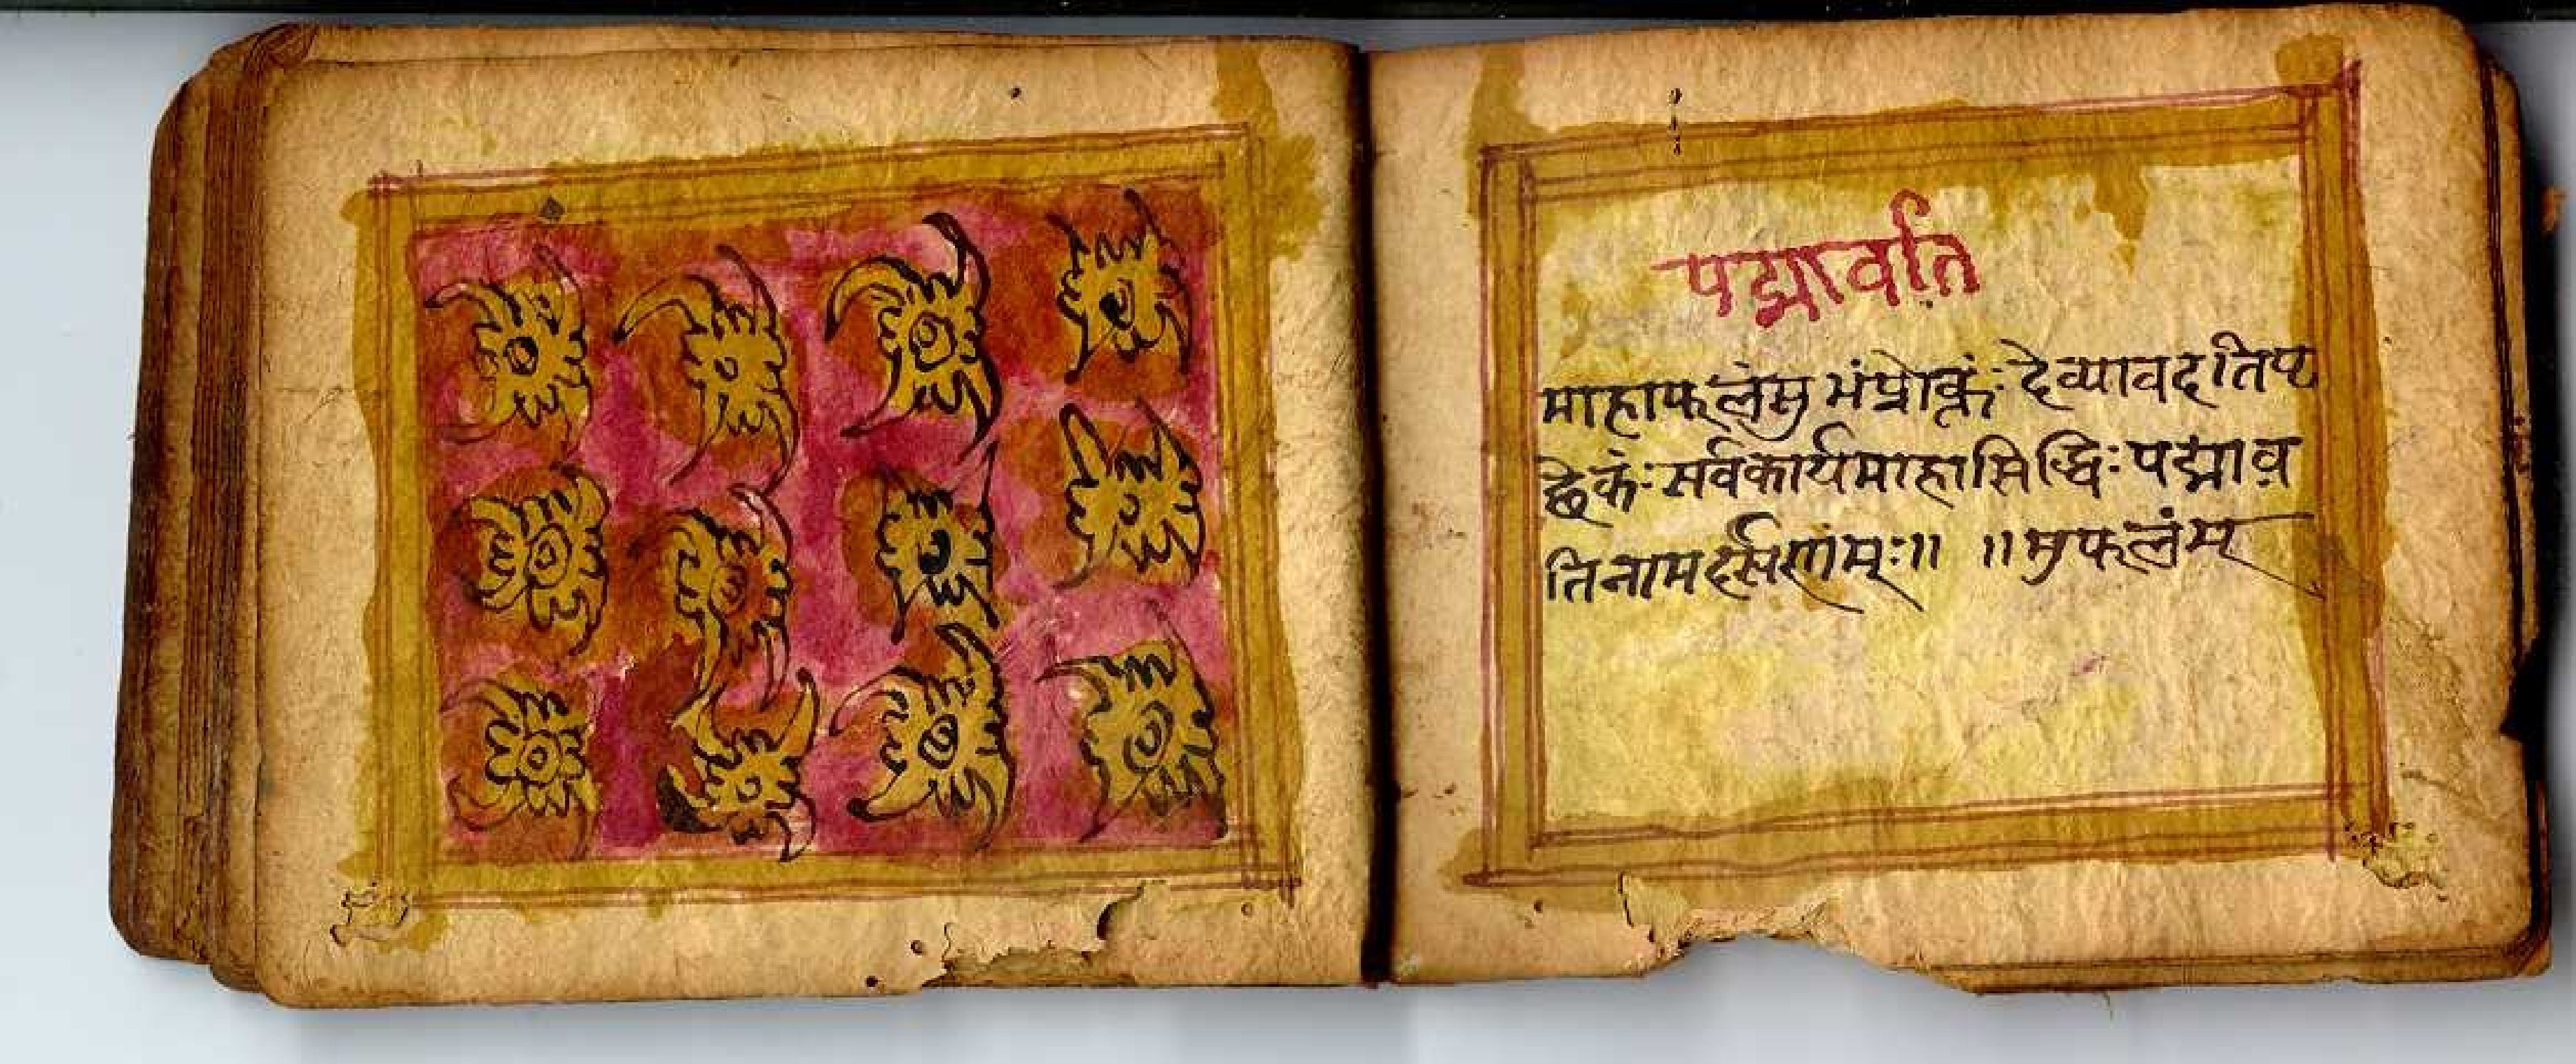 पद्मावति
माहाफलंसुभंप्रोक्तं: देव्यावदतिष्ट
छेकं: सर्वकार्यमाहासिद्धि: पद्माव
तिनामदर्सणंम्:॥ ॥सुफलंम्